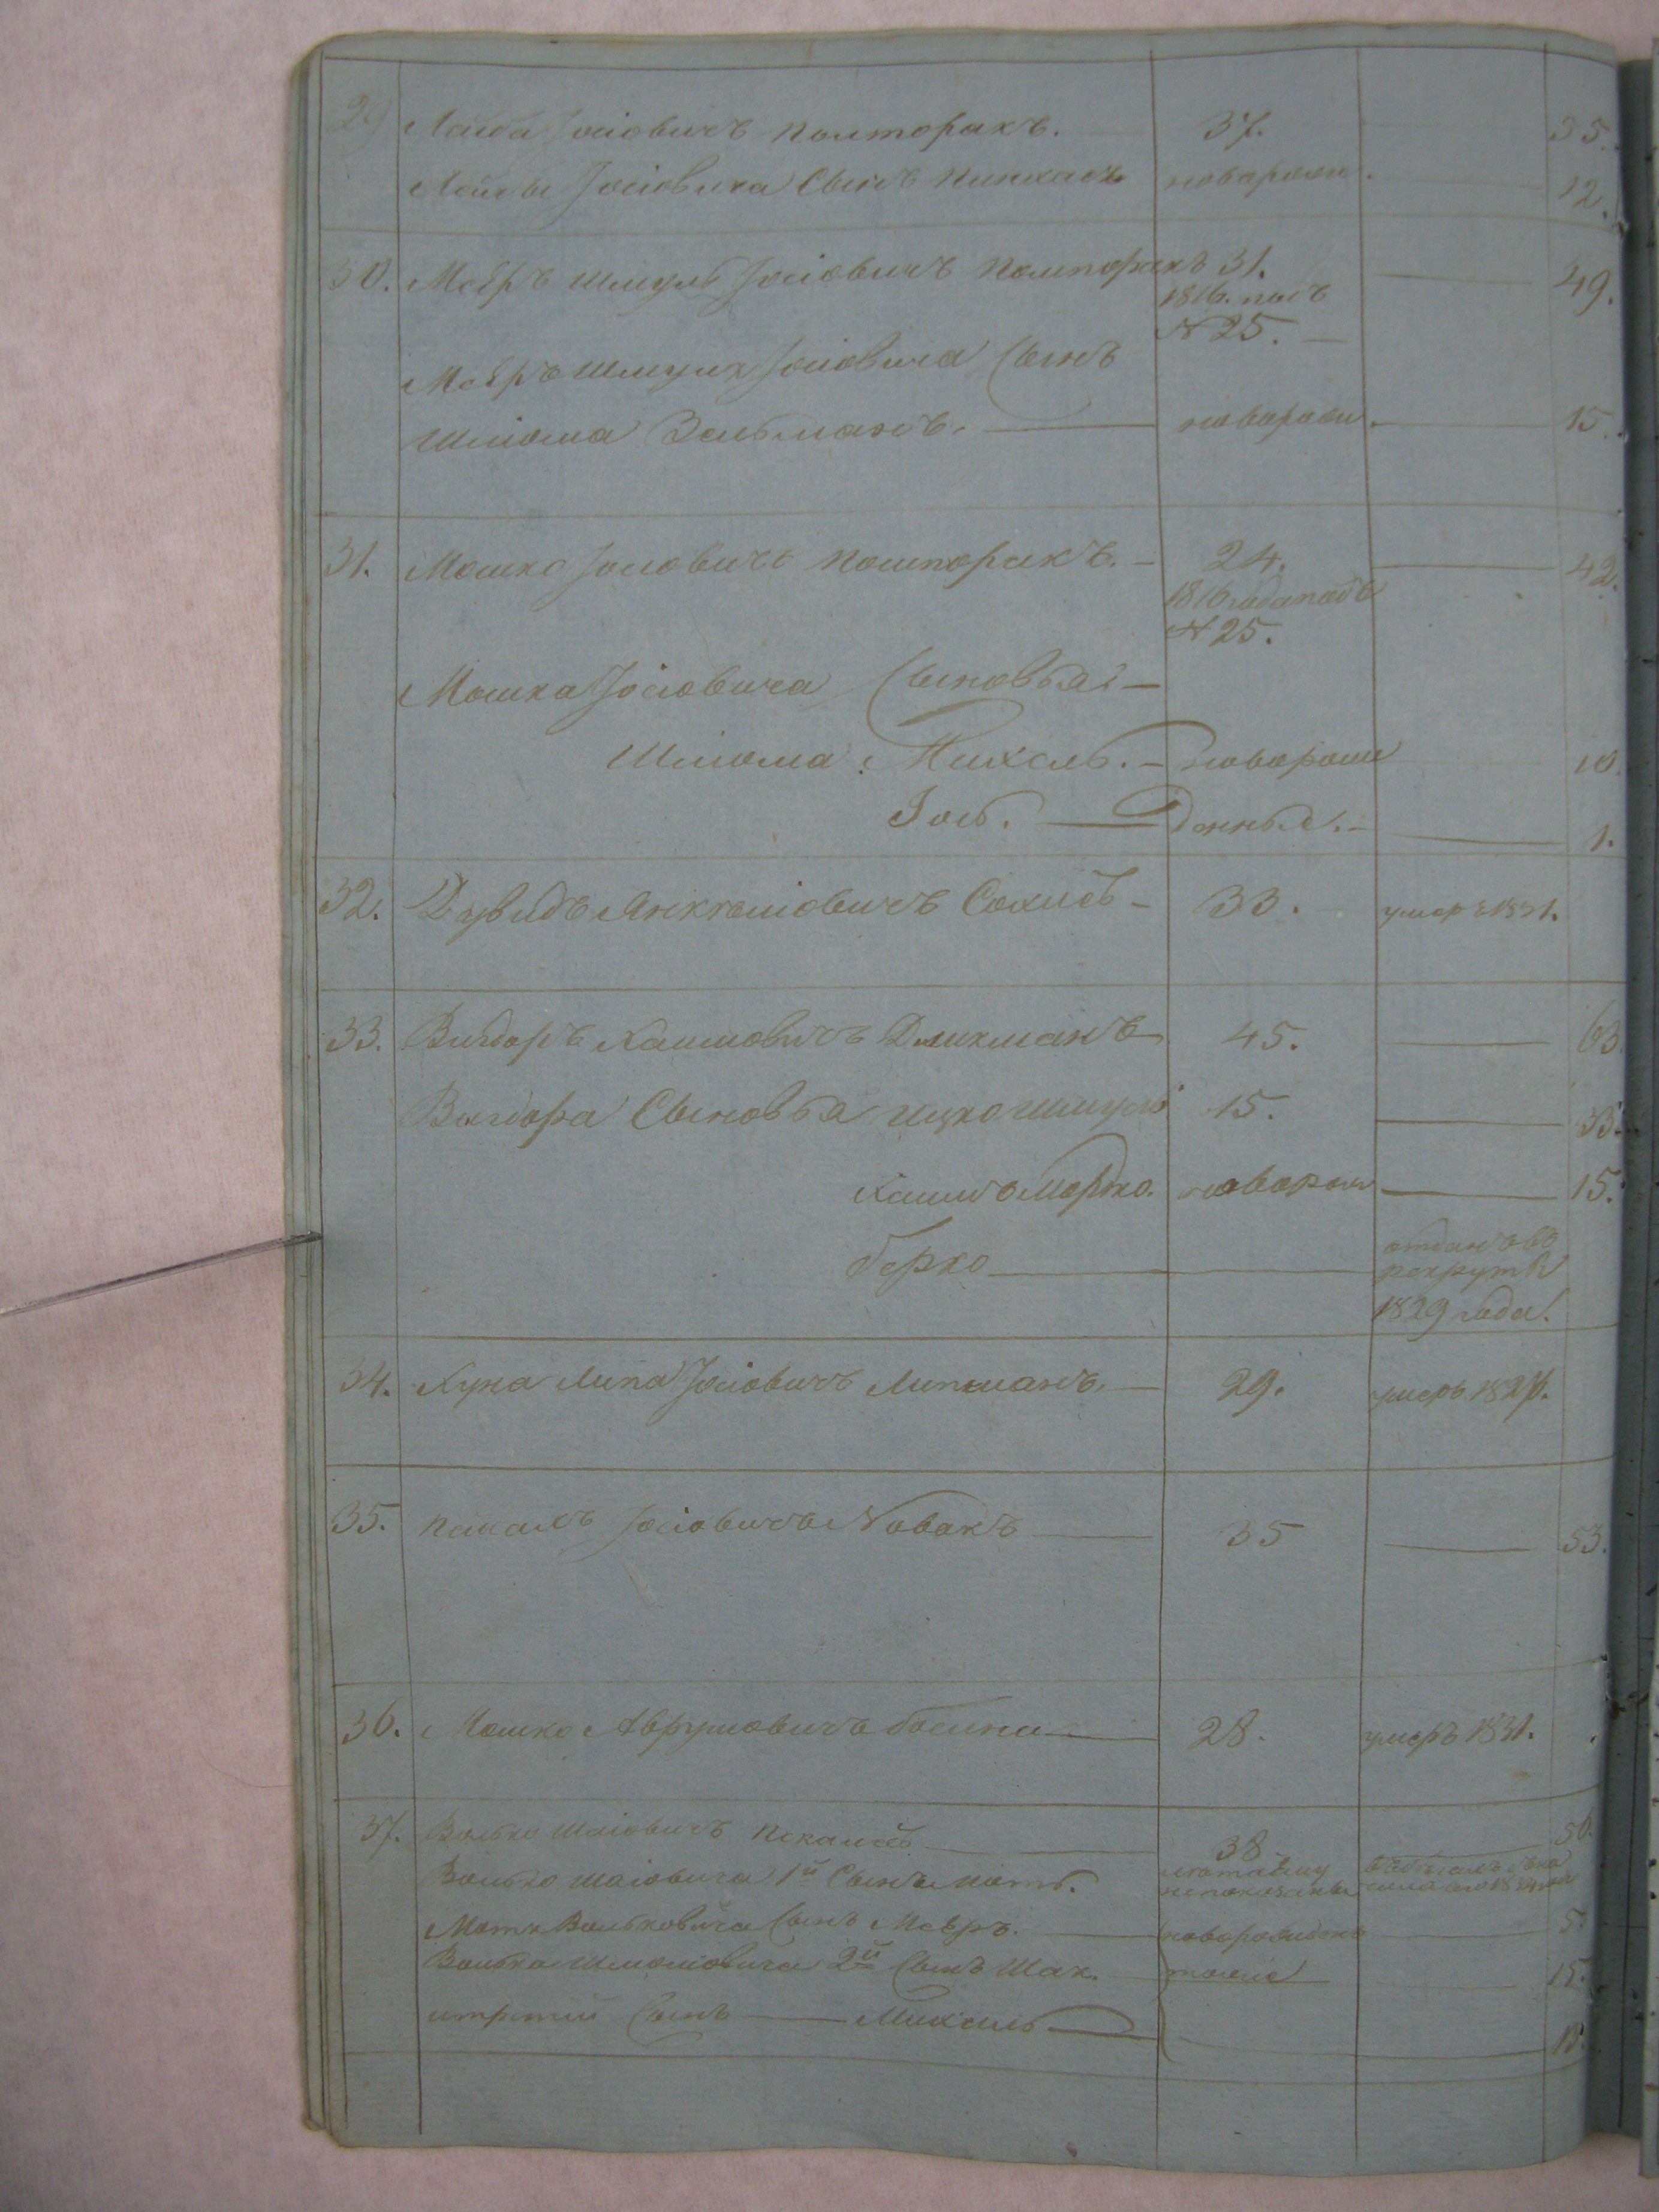 29 Лейба Іосіовичъ Полторакъ. 37. 55.
Лейбы Іосіовича Сынъ Пинхасъ новорожд. 12.
30. Меѣръ Шмуль Іосіовичъ Полторакъ 31. 49.
1816. подъ
№ 25.
Меѣръ Шмуля Іосіовича Сынъ
Шліома Зельманъ. новорожд. 15.
31. Мошко Іосіовичъ Полторакъ. 24. 42.
1816 года подъ
№ 25.
Мошка Іосіовича Сыновья:
Шліома Михель. новорож 10.
Іось. денные. 1.
32. Давидъ Янкеліовичъ 33. умеръ 1831.
33. Вигдоръ Хаимовичъ Дикманъ 45. 63
Вигдора Сыновья Ицко Шмуль 15. 33.
Хаимъ Мордко. новорож 15.
Берко отданъ въ
рекруты
1829 года.
34. Хуна Липа Іосіовичъ Липманъ. 29. умеръ 1827.
35. Іосіовичъ Новакъ 35 53.
36. Мошко Аврумовичъ 28. умеръ 1831.
37. Волько Шаіовичъ 38 56.
Волька Шаіовича 1й Сынъ Мотъ.
Мотя Вольковича Сынъ Меѣръ. новорожденъ 5.
Волька Шліомовича 2й Сынъ Шая. тоже 15.
и третій Сынъ Михель 13.